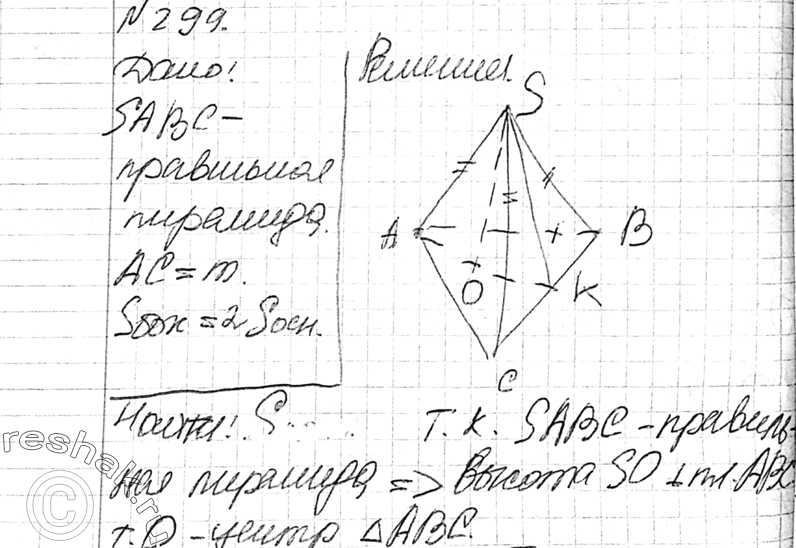 N 299.
Дано!
SABC-
правильная
пирамида.
AC = m.
Sбок = 2 Sосн.
Решение.
S
A
B
O
K
C
Найти! S
Т. к. SABC - правиль-
ная пирамида => высота SO ⊥ пл. ABC
т. O - центр △ABC.
reshak.ru